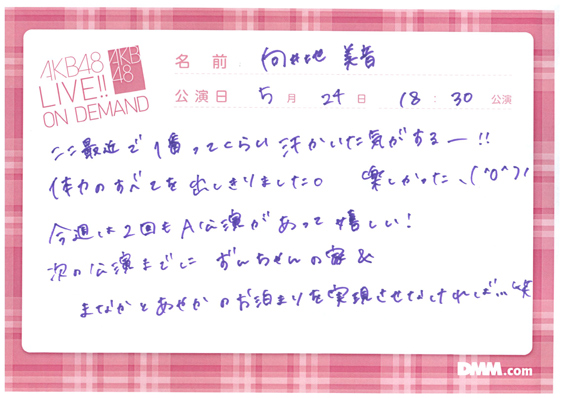 AKB48
LIVE!!
ON DEMAND
AKB
48
名前 向井地 美音
公演日 5月 24日 18:30 公演
ここ最近で1番ってくらい汗かいた気がするー!!
体力のすべてを出しきりました。 楽しかった、(^o^)ﾉ
今週は2回もA公演があって嬉しい!
次の公演までに ずんちゃんの家&
まなかとあやかのお泊まりを実現させなければ…笑
DMM.com